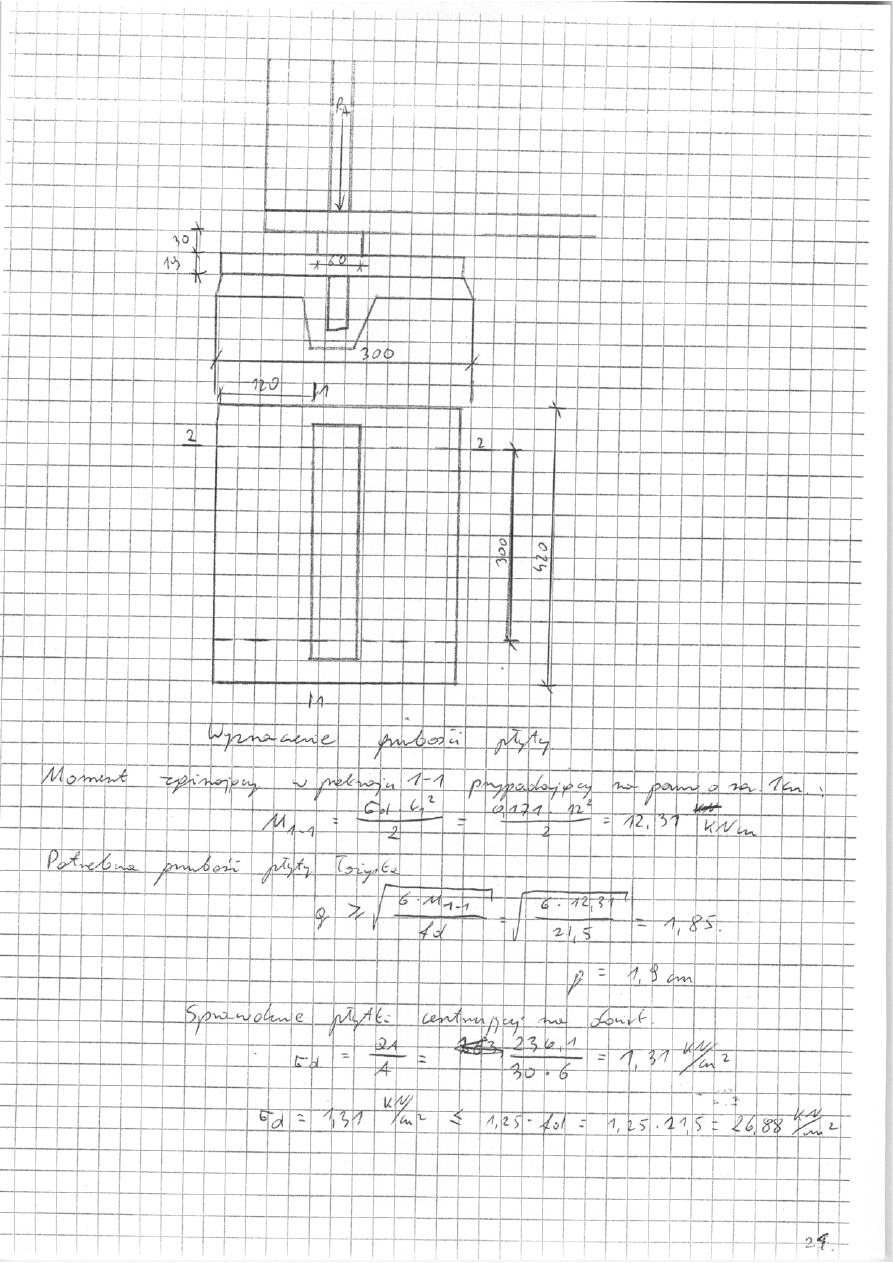 PA
30
19
60
300
120
1
2
2
300
420
1
Wyznaczenie grubości płyty
Moment zginający w przekroju 1-1 przypadający na pasmo o szer. 1cm.:
M1-1 = σd · l1² / 2 = 0,171 · 12² / 2 = 12,31 kNm
Potrzebna grubość płyty łożyska
g ≥ √(6 · M1-1 / fd) = √(6 · 12,31 / 21,5) = 1,85.
g = 1,9 cm
Sprawdzenie płytki centrującej na docisk.
σd = / A = 236,1 / 30 · 6 = 1,31 kN/cm²
σd = 1,31 kN/cm² ≤ 1,25 · fd = 1,25 · 21,5 = 26,88 kN/cm²